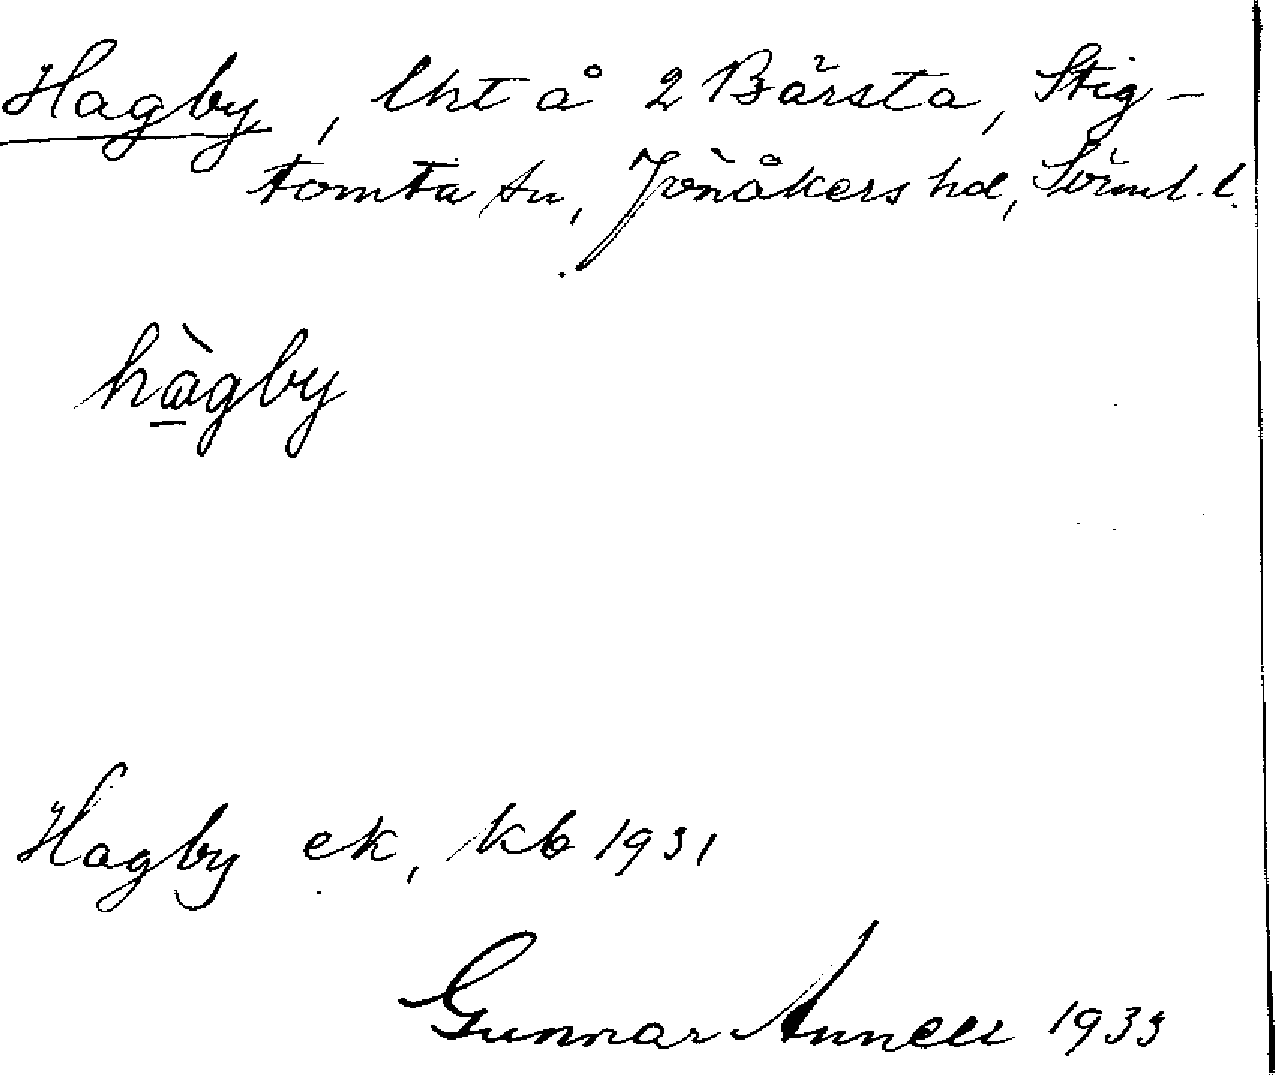 Hagby, lht å 2 Bärsta, Stig-
tomta sn, Jönåkers hd, Sörml. l.
hàgby
Hagby ek, kb 1931
Gunnar Annell 1933